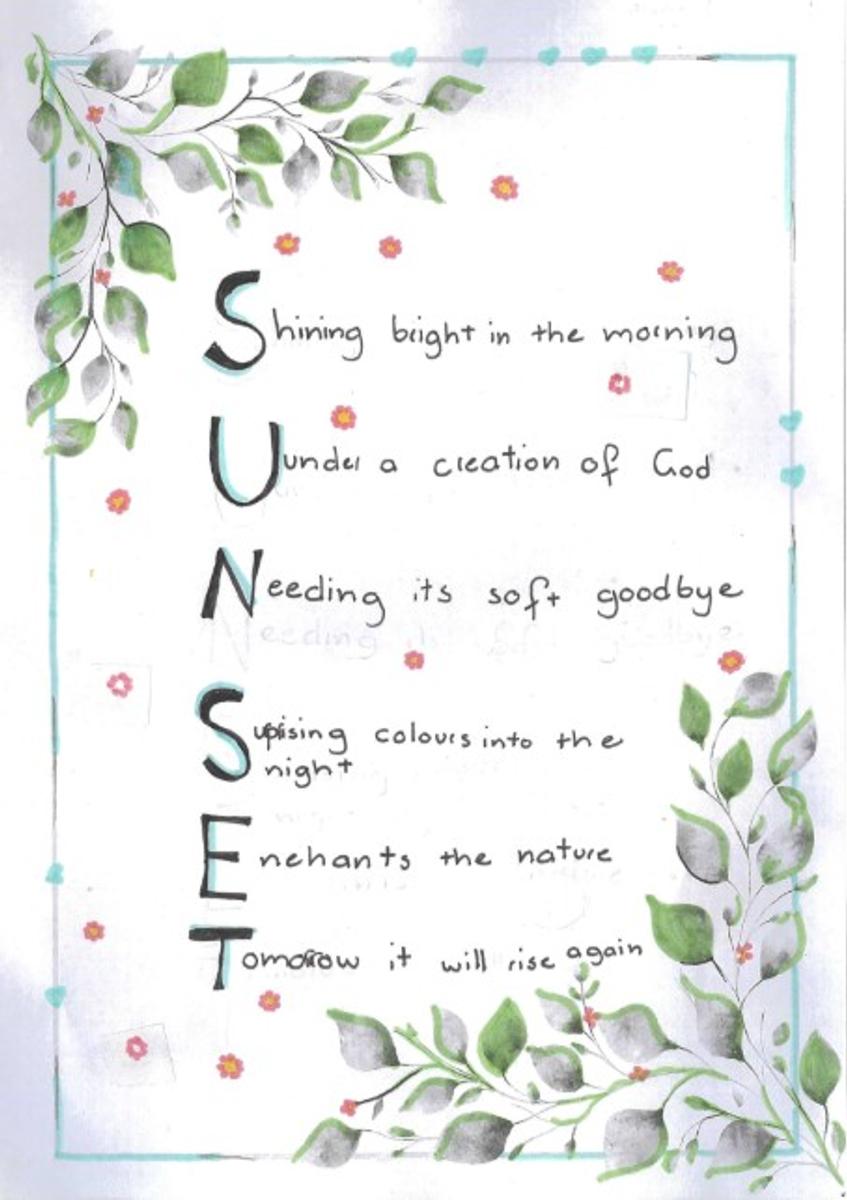 Shining bright in the morning
Uunder a creation of God
Needing its soft goodbye
Suprising colours into the
night
Enchants the nature
Tomorrow it will rise again